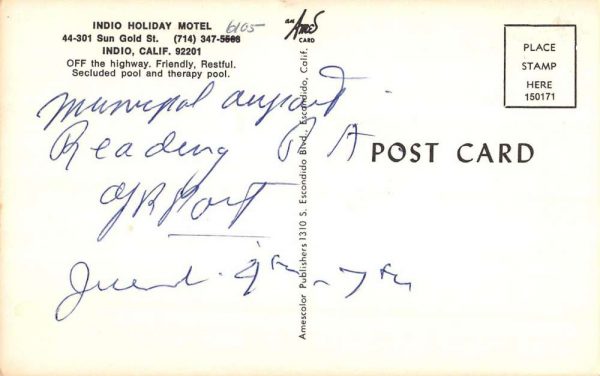 INDIO HOLIDAY MOTEL
6105
44-301 Sun Gold St. (714) 347-5503
INDIO, CALIF. 92201
OFF the highway. Friendly, Restful.
Secluded pool and therapy pool.
an
Ames
CARD
PLACE
STAMP
HERE
150171
Municipal airport
Reading P A
POST CARD
Amescolor Publishers 1310 S. Escondido Blvd., Escondido, Calif.